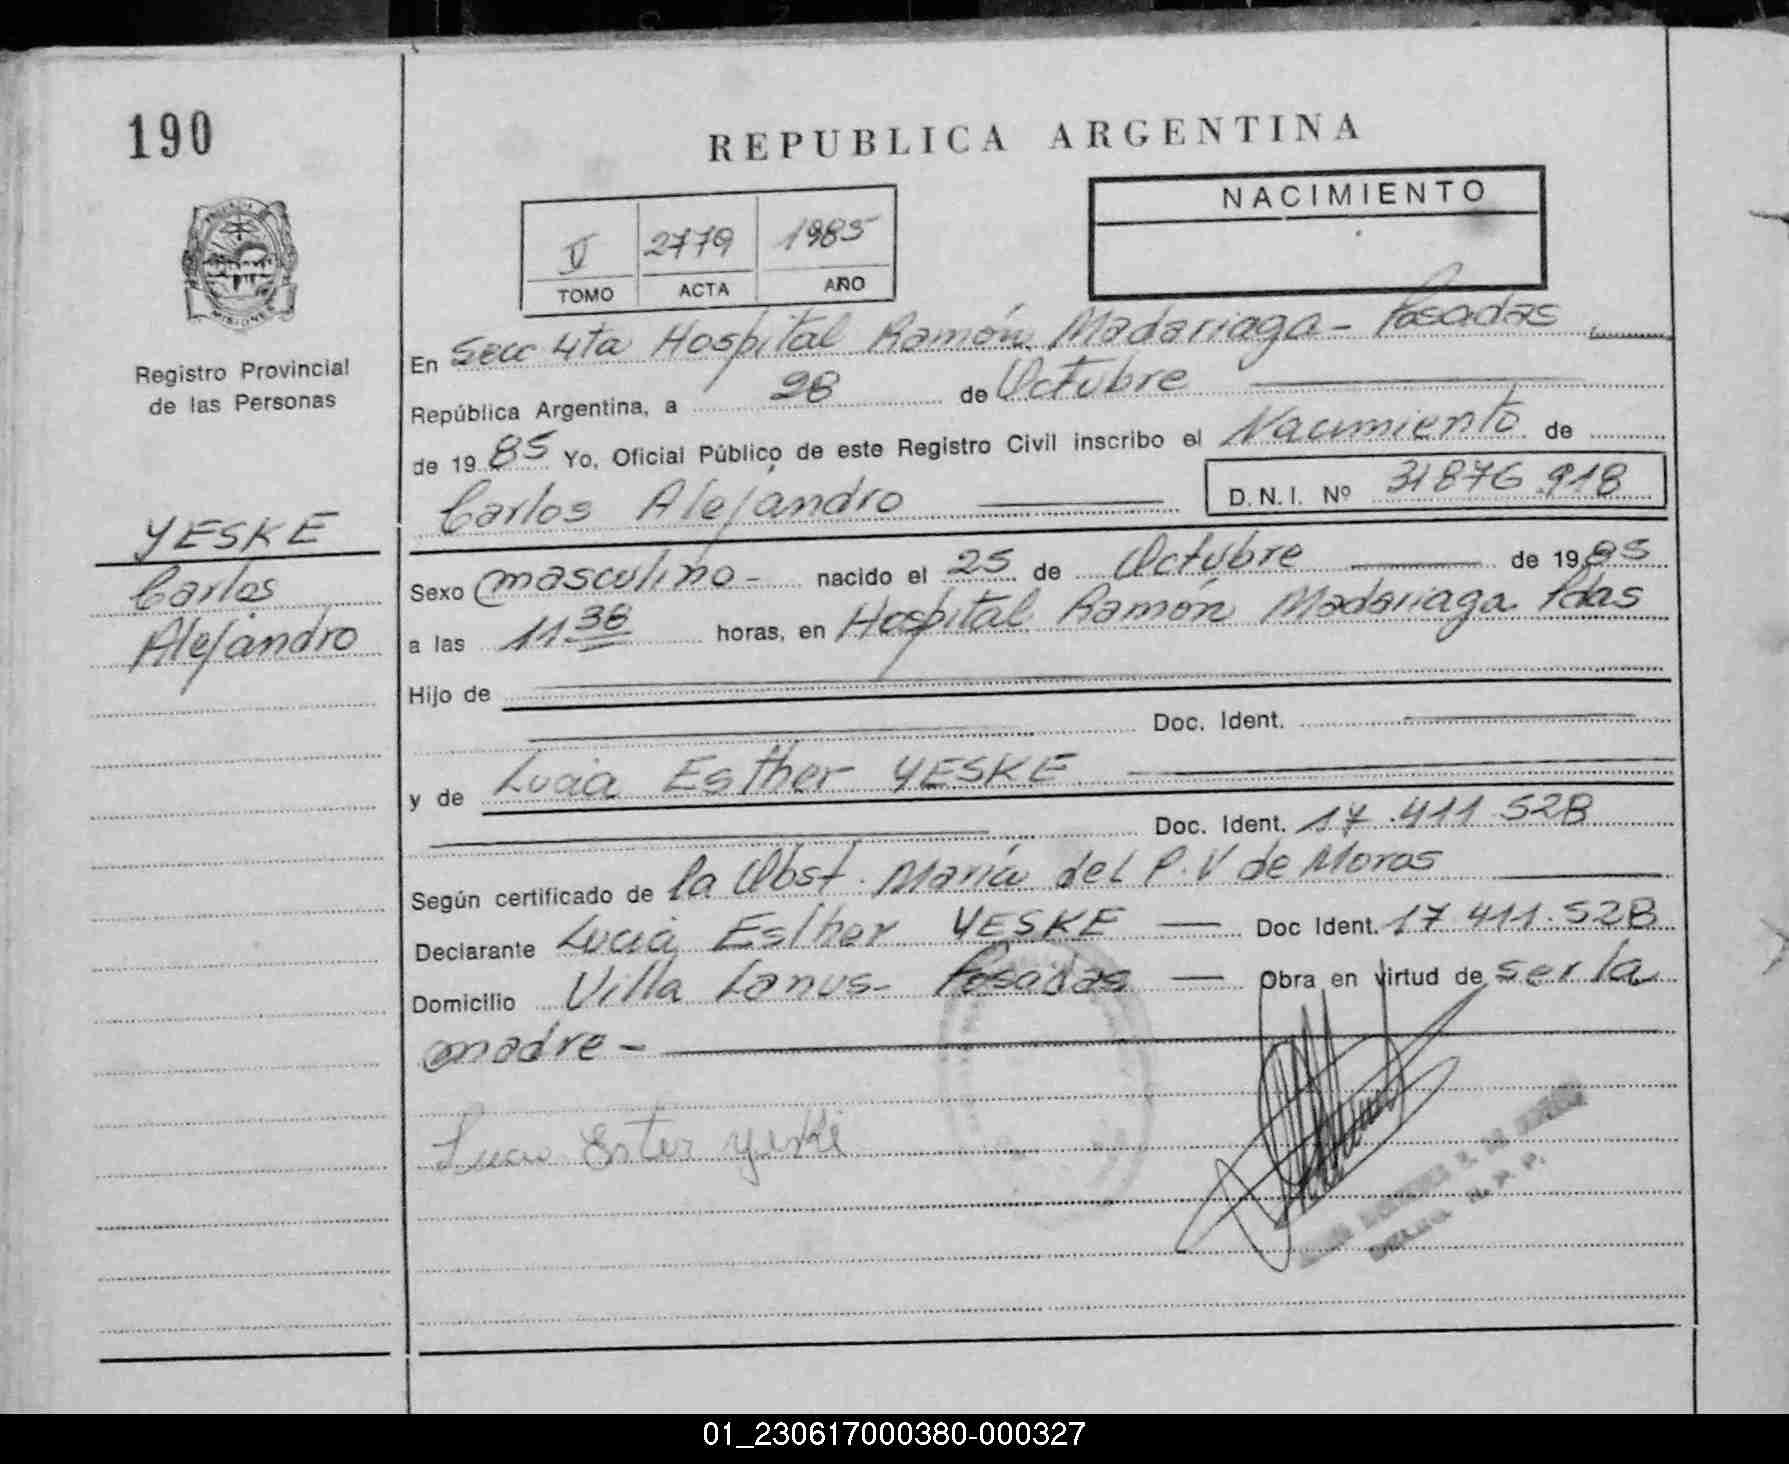 190
REPUBLICA ARGENTINA
NACIMIENTO
V 2779 1985
TOMO ACTA AÑO
MISIONES
Registro Provincial
de las Personas
En Secc 4ta Hospital Ramón Madariaga - Posadas
República Argentina, a 28 de Octubre
de 19 85 Yo, Oficial Público de este Registro Civil inscribo el Nacimiento de
Carlos Alejandro D.N.I. Nº 31876 918
YESKE
Carlos
Alejandro
Sexo masculino - nacido el 25 de Octubre de 19 85
a las 11 38 horas, en Hospital Ramón Madariaga Pdas
Hijo de
Doc. Ident.
y de Lucia Esther YESKE
Doc. Ident. 17.411.528
Según certificado de la Obst. María del P. V de Moros
Declarante Lucia Esther YESKE — Doc Ident. 17 411.528
Domicilio Villa Lanus - Posadas — Obra en virtud de ser la
madre -
Lucia Ester Yeske
R. P. P.
01_230617000380-000327